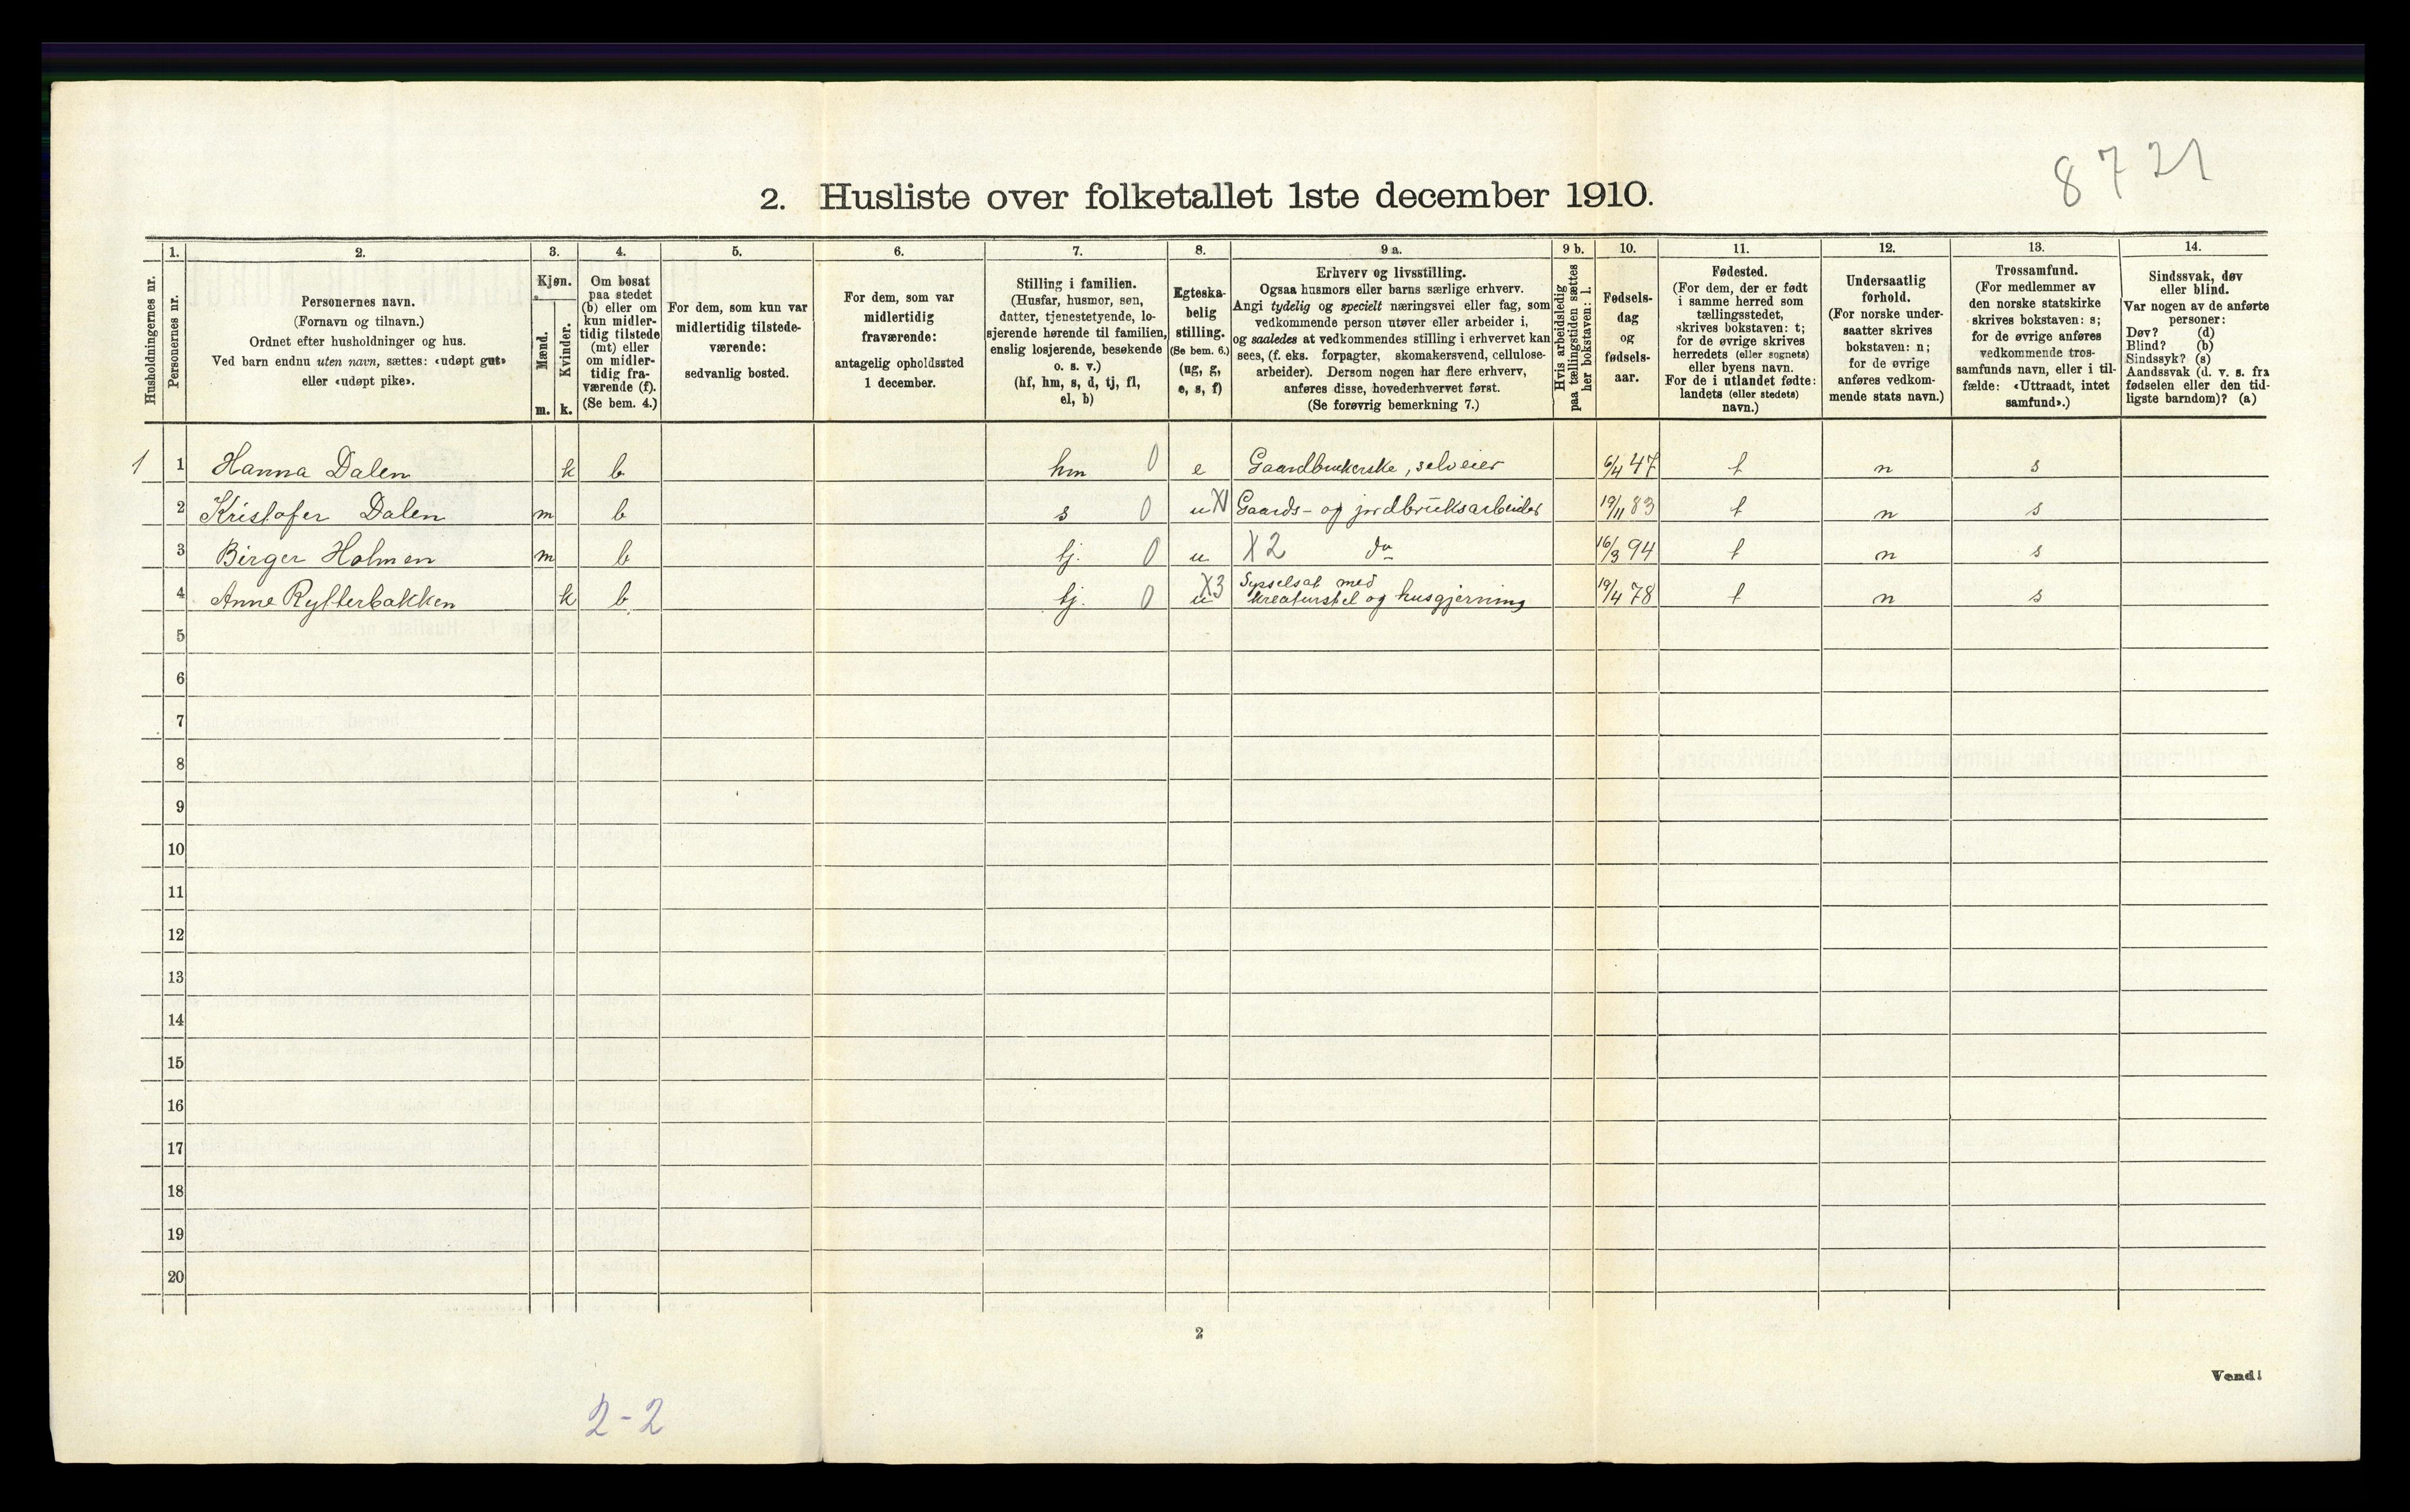 8721
2. Husliste over folketallet 1ste december 1910.
Husholdningernes nr.
1.
Personernes nr.
2.
Personernes navn.
(Fornavn og tilnavn.)
Ordnet efter husholdninger og hus.
Ved barn endnu uten navn, sættes: «udøpt gut»
eller «udøpt pike».
3.
Kjøn.
Mænd.
Kvinder.
m. k.
4.
Om bosat
paa stedet
(b) eller om
kun midler-
tidig tilstede
(mt) eller
om midler-
tidig fra-
værende (f).
(Se bem. 4.)
5.
For dem, som kun var
midlertidig tilstede-
værende:
sedvanlig bosted.
6.
For dem, som var
midlertidig
fraværende:
antagelig opholdssted
1 december.
7.
Stilling i familien.
(Husfar, husmor, søn,
datter, tjenestetyende, lo-
sjerende hørende til familien,
enslig losjerende, besøkende
o. s. v.)
(hf, hm, s, d, tj, fl,
el, b)
8.
Egteska-
belig
stilling.
(Se bem. 6.)
(ug, g,
e, s, f)
9 a.
Erhverv og livsstilling.
Ogsaa husmors eller barns særlige erhverv.
Angi tydelig og specielt næringsvei eller fag, som
vedkommende person utøver eller arbeider i,
og saaledes at vedkommendes stilling i erhvervet kan
sees, (f. eks. forpagter, skomakersvend, cellulose-
arbeider). Dersom nogen har flere erhverv,
anføres disse, hovederhvervet først.
(Se forøvrig bemerkning 7.)
9 b.
Hvis arbeidsledig
paa tællingstiden sættes
her bokstaven: l.
10.
Fødsels-
dag
og
fødsels-
aar.
11.
Fødested.
(For dem, der er født
i samme herred som
tællingsstedet,
skrives bokstaven: t;
for de øvrige skrives
herredets (eller sognets)
eller byens navn.
For de i utlandet fødte:
landets (eller stedets)
navn.)
12.
Undersaatlig
forhold.
(For norske under-
saatter skrives
bokstaven: n;
for de øvrige
anføres vedkom-
mende stats navn.)
13.
Trossamfund.
(For medlemmer av
den norske statskirke
skrives bokstaven: s;
for de øvrige anføres
vedkommende tros-
samfunds navn, eller i til-
fælde: «Uttraadt, intet
samfund».)
14.
Sindssvak, døv
eller blind.
Var nogen av de anførte
personer:
Døv? (d)
Blind? (b)
Sindssyk? (s)
Aandssvak (d. v. s. fra
fødselen eller den tid-
ligste barndom)? (a)
1 1 Hanna Dalen k b hm 0 e Gaardbrukerske, selveier 6/4 47 t n s
2 Kristofer Dalen m b s 0 u X1 Gaards- og jordbruksarbeider 19/11 83 t n s
3 Birger Holmen m b tj. 0 u X2 do 16/3 94 t n s
4 Anne Rytterbakken k b tj. 0 u X3 Sysselsat med
kreaturstel og husgjerning 19/4 78 t n s
5
6
7
8
9
10
11
12
13
14
15
16
17
18
19
20
2
Vend!
2-2